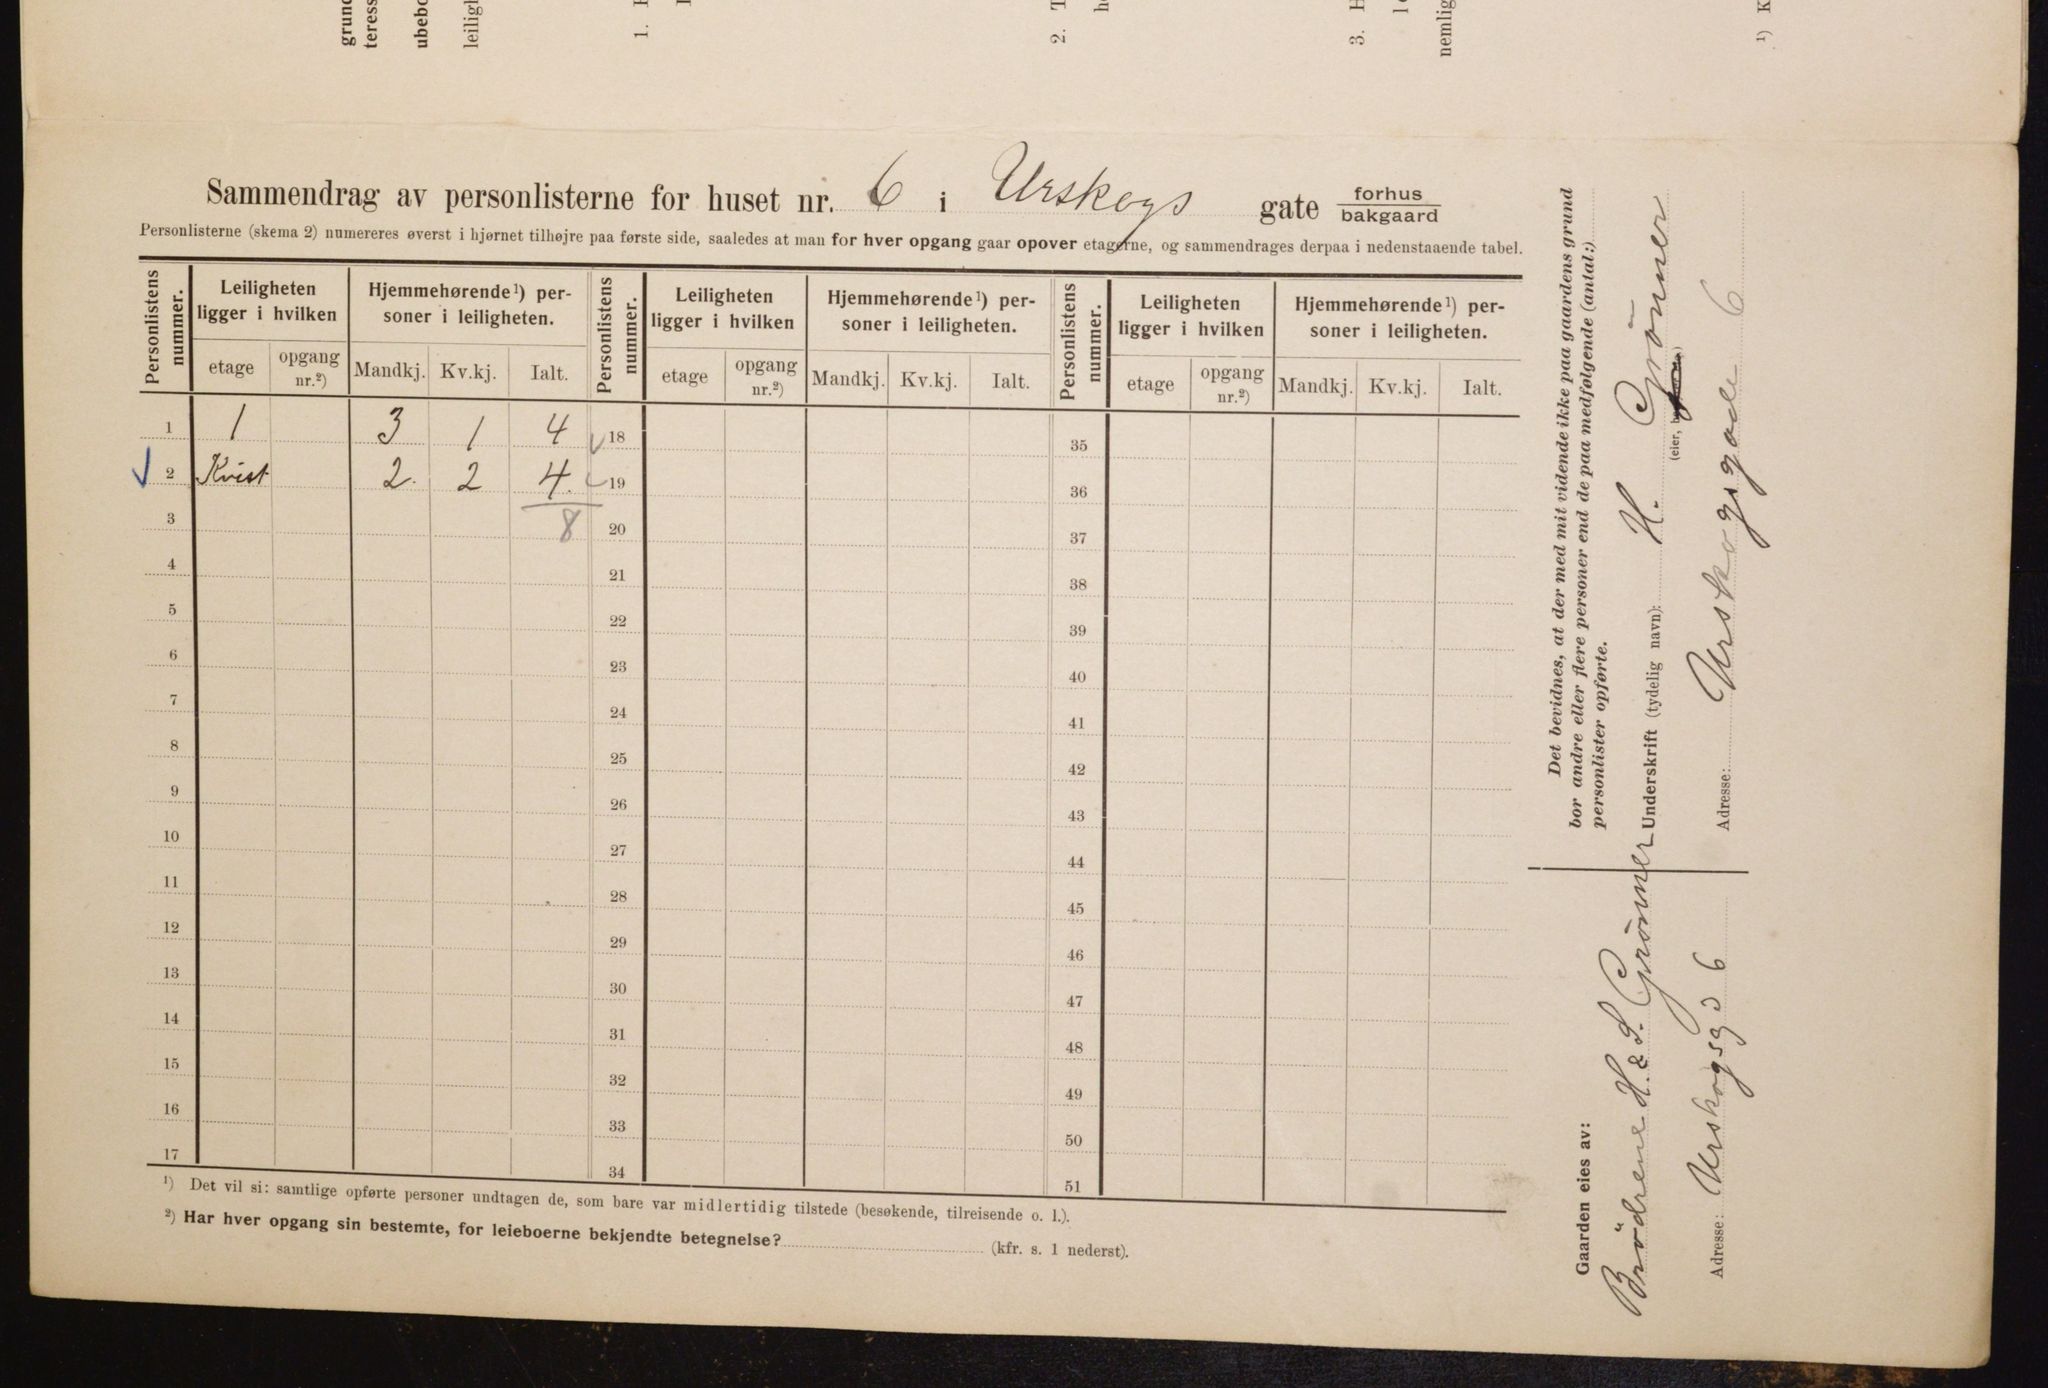 grund
teress
ubebo
leilig
1.
2.
3.
nemlig
¹) K
Sammendrag av personlisterne for huset nr. 6 i Urskogs gate forhus
bakgaard
Personlisterne (skema 2) numereres øverst i hjørnet tilhøjre paa første side, saaledes at man for hver opgang gaar opover etagerne, og sammendrages derpaa i nedenstaaende tabel.
Personlistens nummer. Leiligheten ligger i hvilken Hjemmehørende¹) personer i leiligheten. Personlistens nummer. Leiligheten ligger i hvilken Hjemmehørende¹) personer i leiligheten. Personlistens nummer. Leiligheten ligger i hvilken Hjemmehørende¹) personer i leiligheten.
etage opgang nr.²) Mandkj. Kv.kj. Ialt. etage opgang nr.²) Mandkj. Kv.kj. Ialt. etage opgang nr.²) Mandkj. Kv.kj. Ialt.
1 1 3 1 4 18 35
2 Kvist 2 2 4 19 36
3 8 20 37
4 21 38
5 22 39
6 23 40
7 24 41
8 25 42
9 26 43
10 27 44
11 28 45
12 29 46
13 30 47
14 31 48
15 32 49
16 33 50
17 34 51
¹) Det vil si: samtlige opførte personer undtagen de, som bare var midlertidig tilstede (besøkende, tilreisende o. l.).
²) Har hver opgang sin bestemte, for leieboerne bekjendte betegnelse? (kfr. s. 1 nederst).
Det bevidnes, at der med mit vidende ikke paa gaardens grund
bor andre eller flere personer end de paa medfølgende (antal:)
personlister opførte.
Underskrift (tydelig navn): H. Grönner
(eier,
Adresse: Urskogsgade 6
Gaarden eies av:
Brödrene H. & S. Grönner
Adresse: Urskogsgd 6